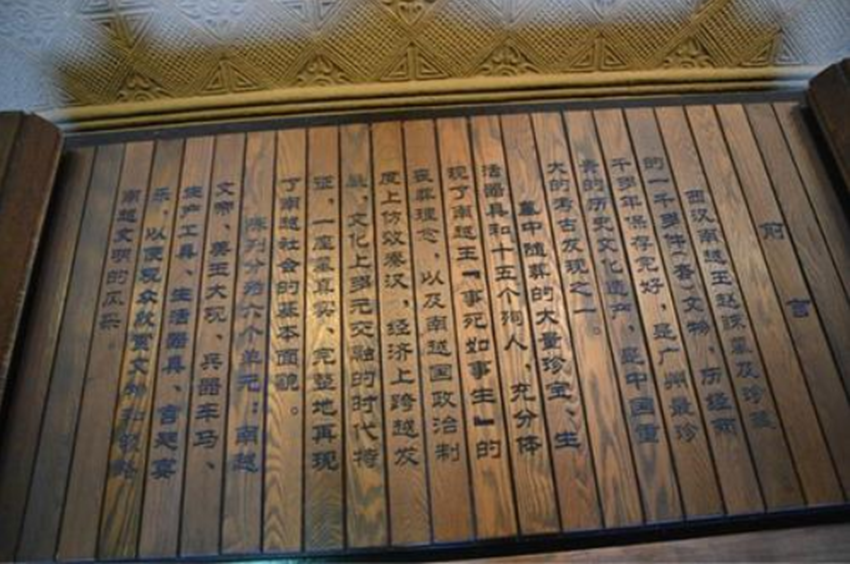 前言
西汉南越王赵眜墓及珍藏
的一千多件(套)文物，历经两
千多年保存完好，是广州最珍
贵的历史文化遗产，是中国重
大的考古发现之一。
墓中随葬的大量珍宝、生
活器具和十五个殉人，充分体
现了南越王『事死如事生』的
丧葬理念，以及南越国政治制
度上仿效秦汉，经济上跨越发
展，文化上多元交融的时代特
征，一座墓真实、完整地再现
了南越社会的基本面貌。
陈列分为六个单元：南越
文帝、美玉大观、兵器车马、
生产工具、生活器具、宫廷宴
乐，以便观众欣赏文物和领略
南越文明的风采。